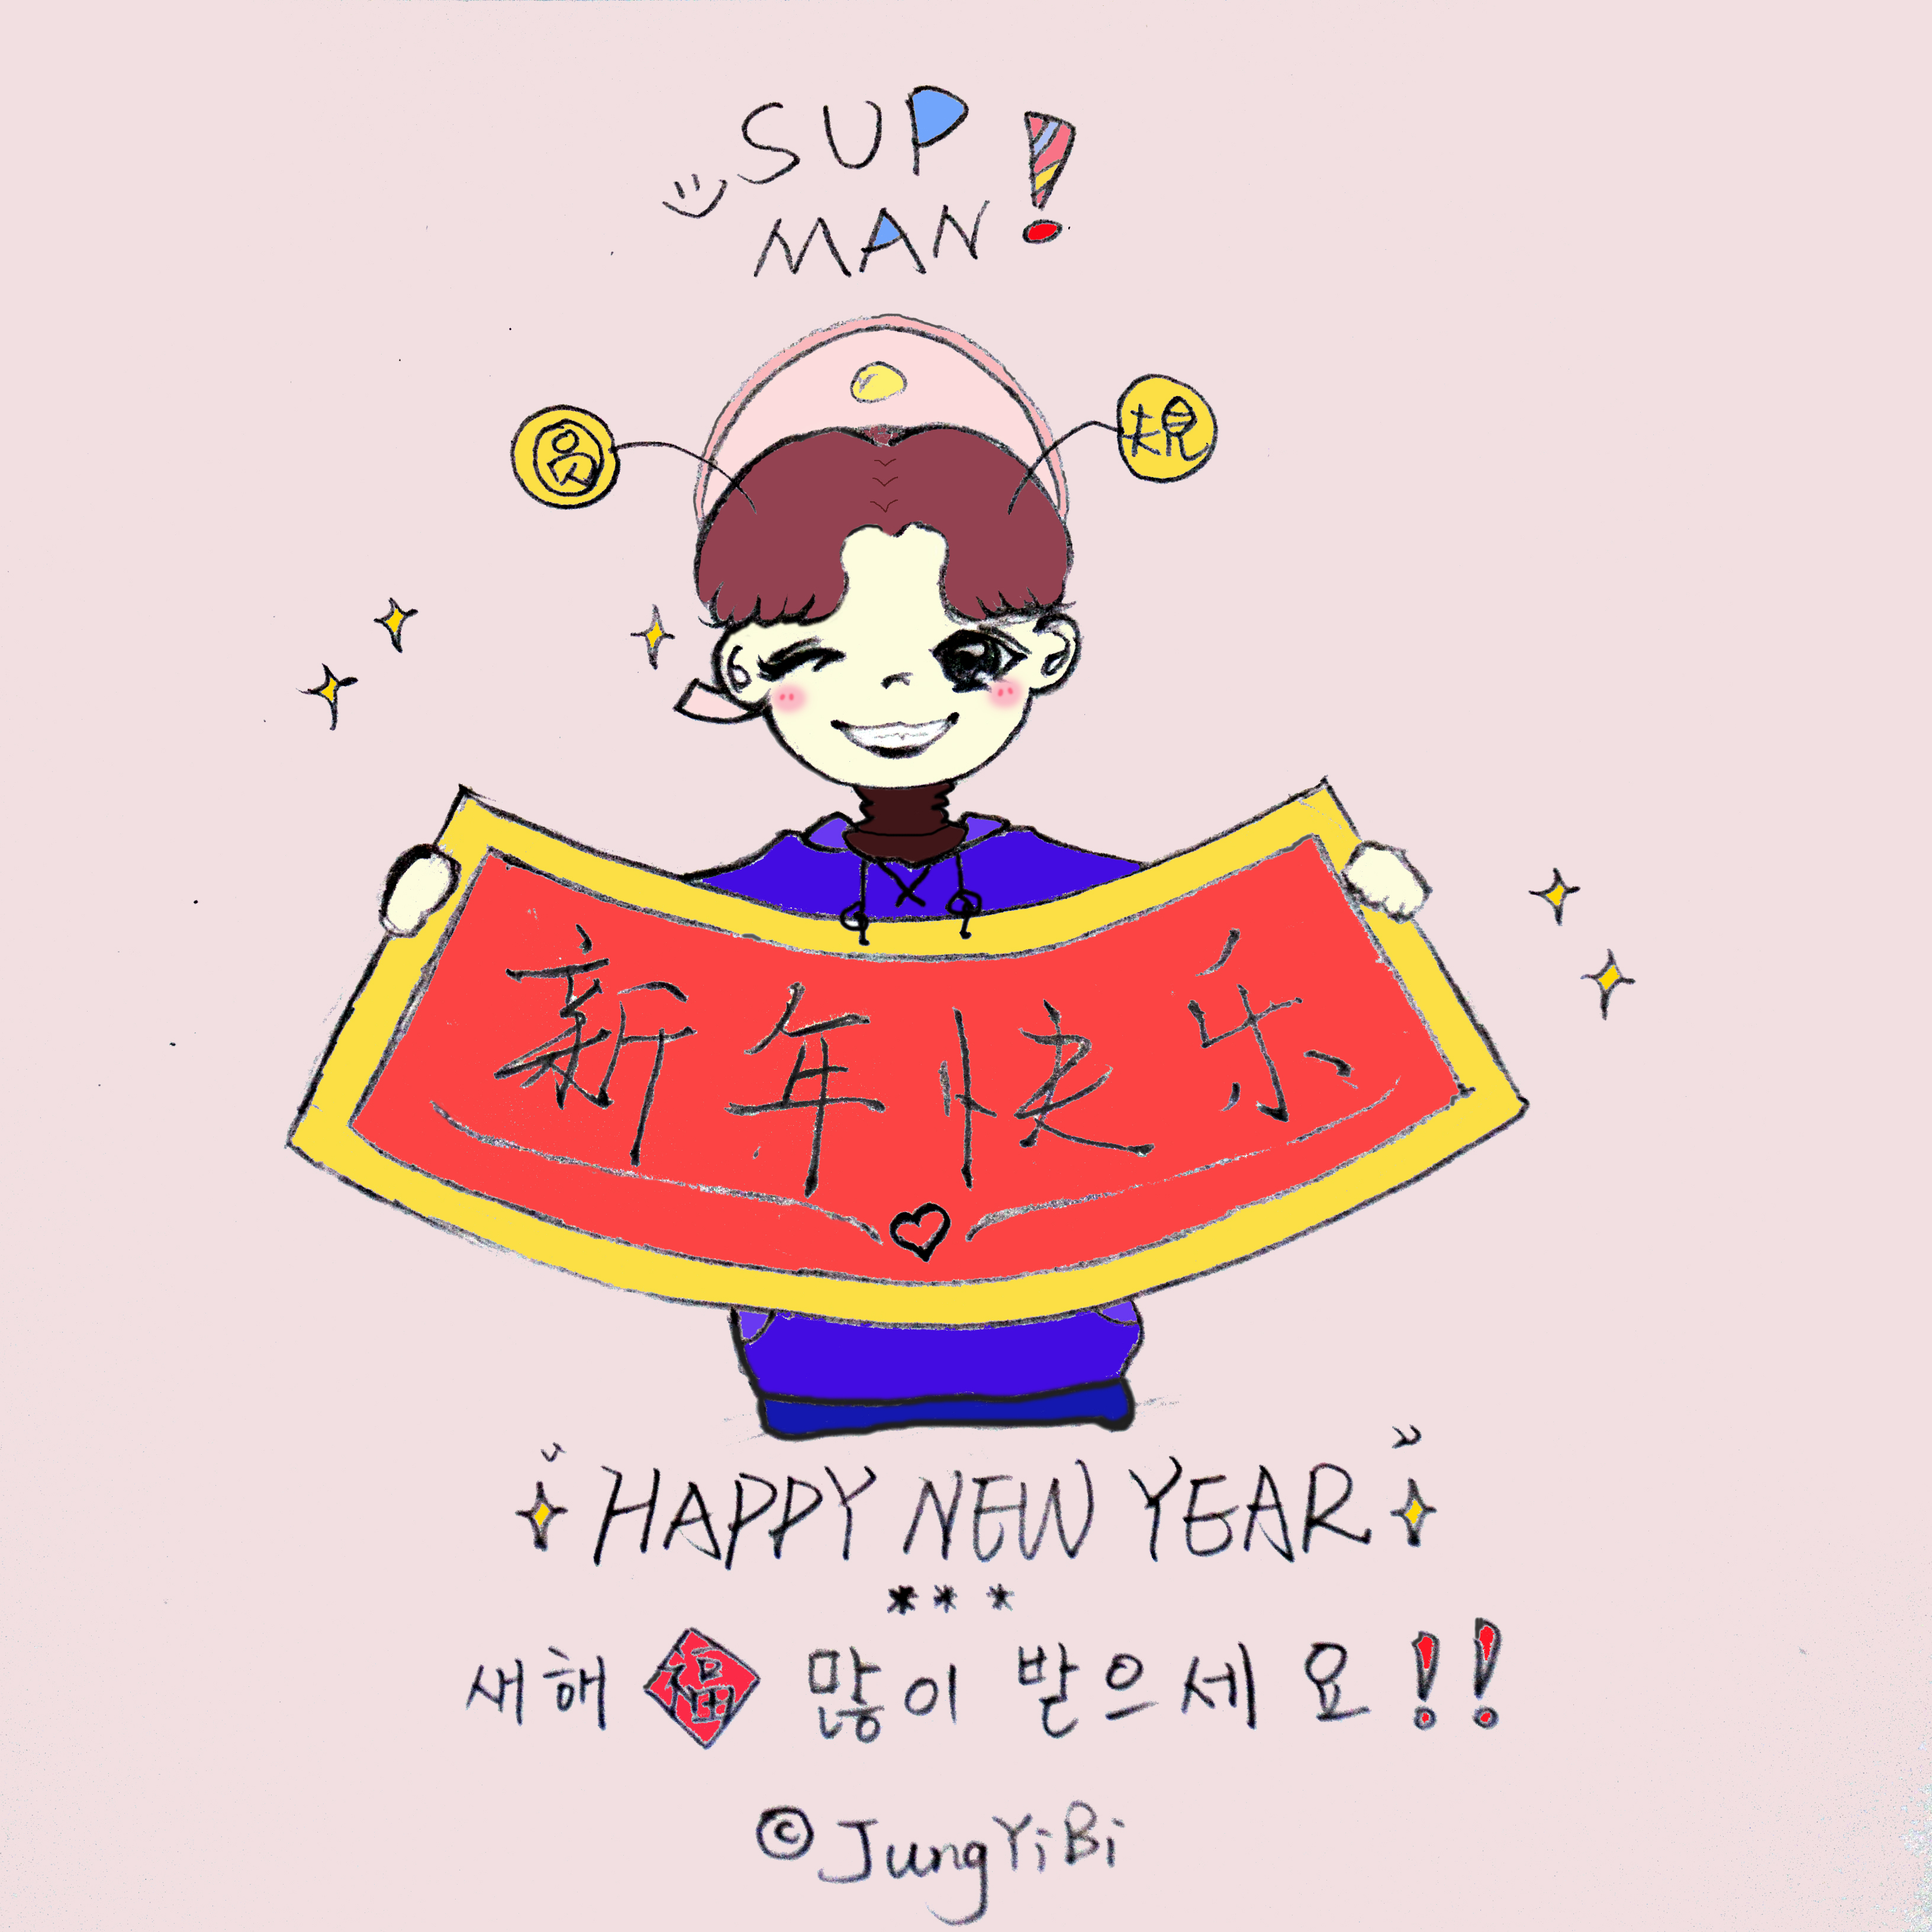 SUP
MAN!
圓 規
新年快乐
HAPPY NEW YEAR
***
새해 福 많이 받으세요!!
©JungYiBi